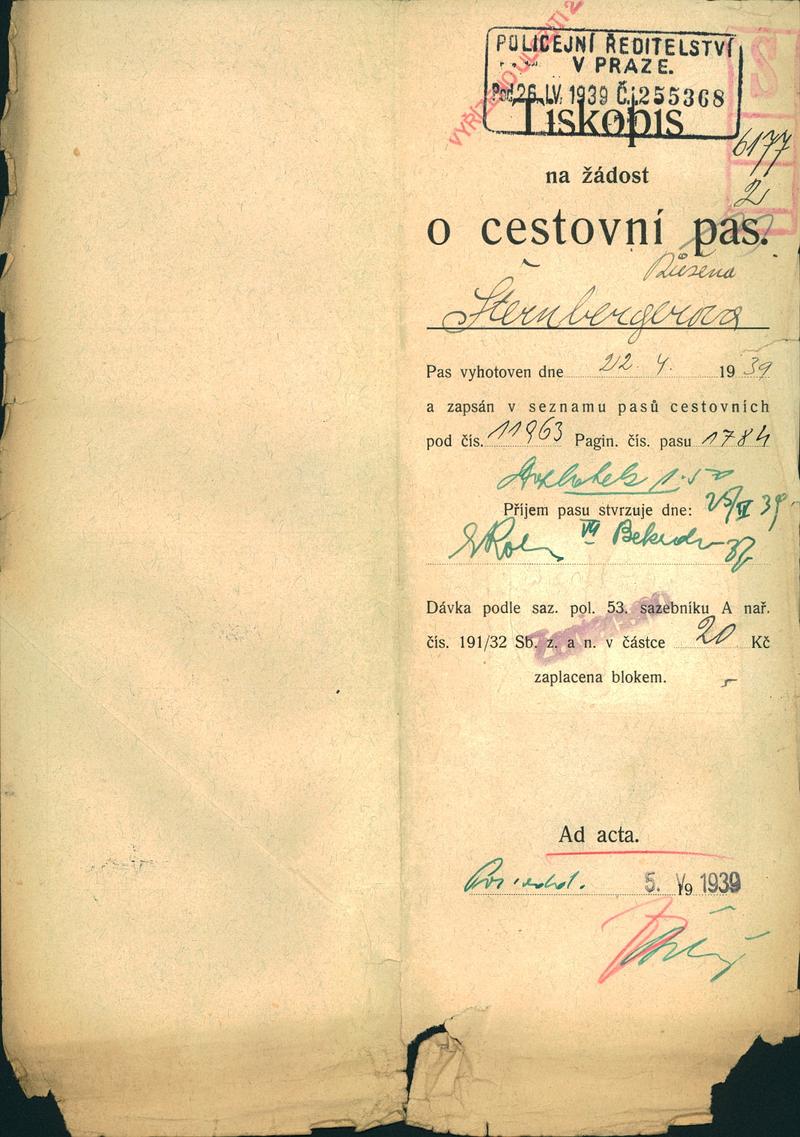 POLICEJNÍ ŘEDITELSTVÍ
V PRAZE.
Pod 26. IV. 1939 Č.j. 255368
S
Tiskopis
6177
2
na žádost
o cestovní pas.
Růžena
Šternbergerova
Pas vyhotoven dne 22. 4. 1939
a zapsán v seznamu pasů cestovních
pod čís. 11963 Pagin. čís. pasu 1784
1.50
Příjem pasu stvrzuje dne: 25/IV 39
VII
37
Dávka podle saz. pol. 53. sazebníku A nař.
čís. 191/32 Sb. z. a n. v částce 20 Kč
zaplacena blokem.
Ad acta.
5. V. 19 1939